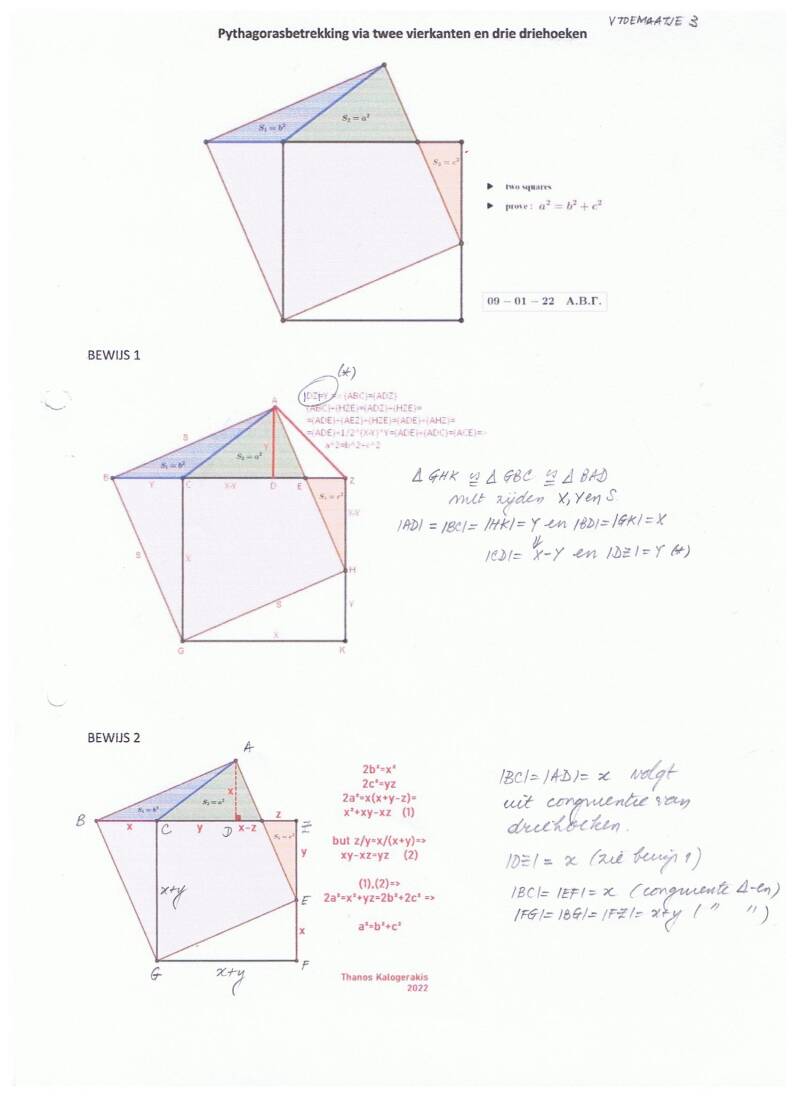 VIDEMAATJE 3
Pythagorasbetrekking via twee vierkanten en drie driehoeken
S₁ = b²
S₂ = a²
S₃ = c²
▶ two squares
▶ prove : a² = b² + c²
09 – 01 – 22 Α.Β.Γ.
BEWIJS 1
(*)
|DZ|=Y => (ABC)=(ADZ)
(ABC)+(HZE)=(ADZ)+(HZE)=
=(ADE)+(AEZ)+(HZE)=(ADE)+(AHZ)=
=(ADE)+1/2*(X-Y)*Y=(ADE)+(ADC)=(ACE)=>
a^2=b^2+c^2
A
S
Y
S₁ = b²
S₂ = a²
B
Y
C
X-Y
D
E
Z
S₃ = c²
X-Y
S
X
H
S
Y
X
G
K
Δ GHK ≅ Δ GBC ≅ Δ BAD
met zijden X, Y en S
|AD| = |BC| = |HK| = Y en |BD| = |GK| = X
⇓
|CD| = X-Y en |DZ| = Y (*)
BEWIJS 2
A
x
S₁ = b²
S₂ = a²
B
x
C
y
D
x-z
z
Z
S₃ = c²
y
x+y
E
x
G
x+y
F
2b²=x²
2c²=yz
2a²=x(x+y-z)=
x²+xy-xz (1)
but z/y=x/(x+y)=>
xy-xz=yz (2)
(1),(2)=>
2a²=x²+yz=2b²+2c² =>
a²=b²+c²
Thanos Kalogerakis
2022
|BC| = |AD| = x volgt
uit congruentie van
driehoeken.
|DZ| = x (zie bewijs 1)
|BC| = |EF| = x (congruente Δ-en)
|FG| = |BG| = |FZ| = x+y ( " " )